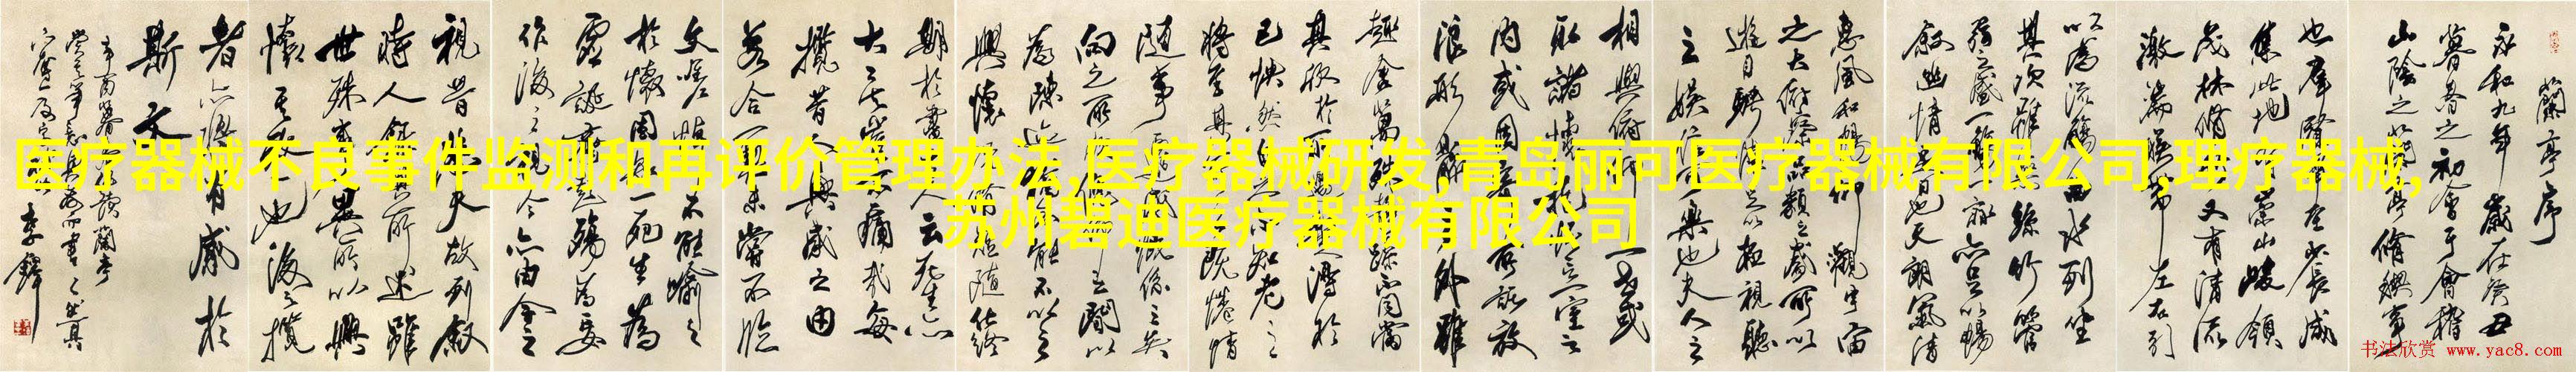 蘭亭序
永和九年歲在癸丑
暮春之初會于會稽
山陰之蘭亭修禊事
也羣賢畢至少長咸
集此地有崇山峻領
茂林修竹又有清流
激湍映帶左右引
以為流觴曲水列坐
其次雖無絲竹管
弦之盛一觴一詠亦足以暢
敘幽情是日也天朗氣清
惠風和暢仰觀宇宙
之大俯察品類之盛所以
遊目騁懷足以極視聽
之娛信可樂也夫人之
相與俯仰一世或
取諸懷抱悟言一室之
內或因寄所託放
浪形骸之外雖
趣舍萬殊靜躁不同當
其欣於所遇暫得於
己快然自足不知老之
將至及其所之既惓情
隨事遷感慨係之矣
向之所欣俛仰之間以
為陳迹猶不能不以之
興懷況脩短隨化終
期於盡古人云死生亦
大矣豈不痛哉每
攬昔人興感之由
若合一契未嘗不臨
文嗟悼不能喻之
於懷固知一死生為
虛誕齊彭殤為妄
作後之視今亦由今之
視昔悲夫故列敘
時人錄其所述雖
世殊事異所以興
懷其致一也後之攬
者亦將有感於
斯文
李鐸
医疗器械不良事件监测和再评价管理办法,医疗器械研发,青岛丽可医疗器械有限公司,理疗器械,
苏州碧迪医疗器械有限公司
书法欣赏 www.yac8.com